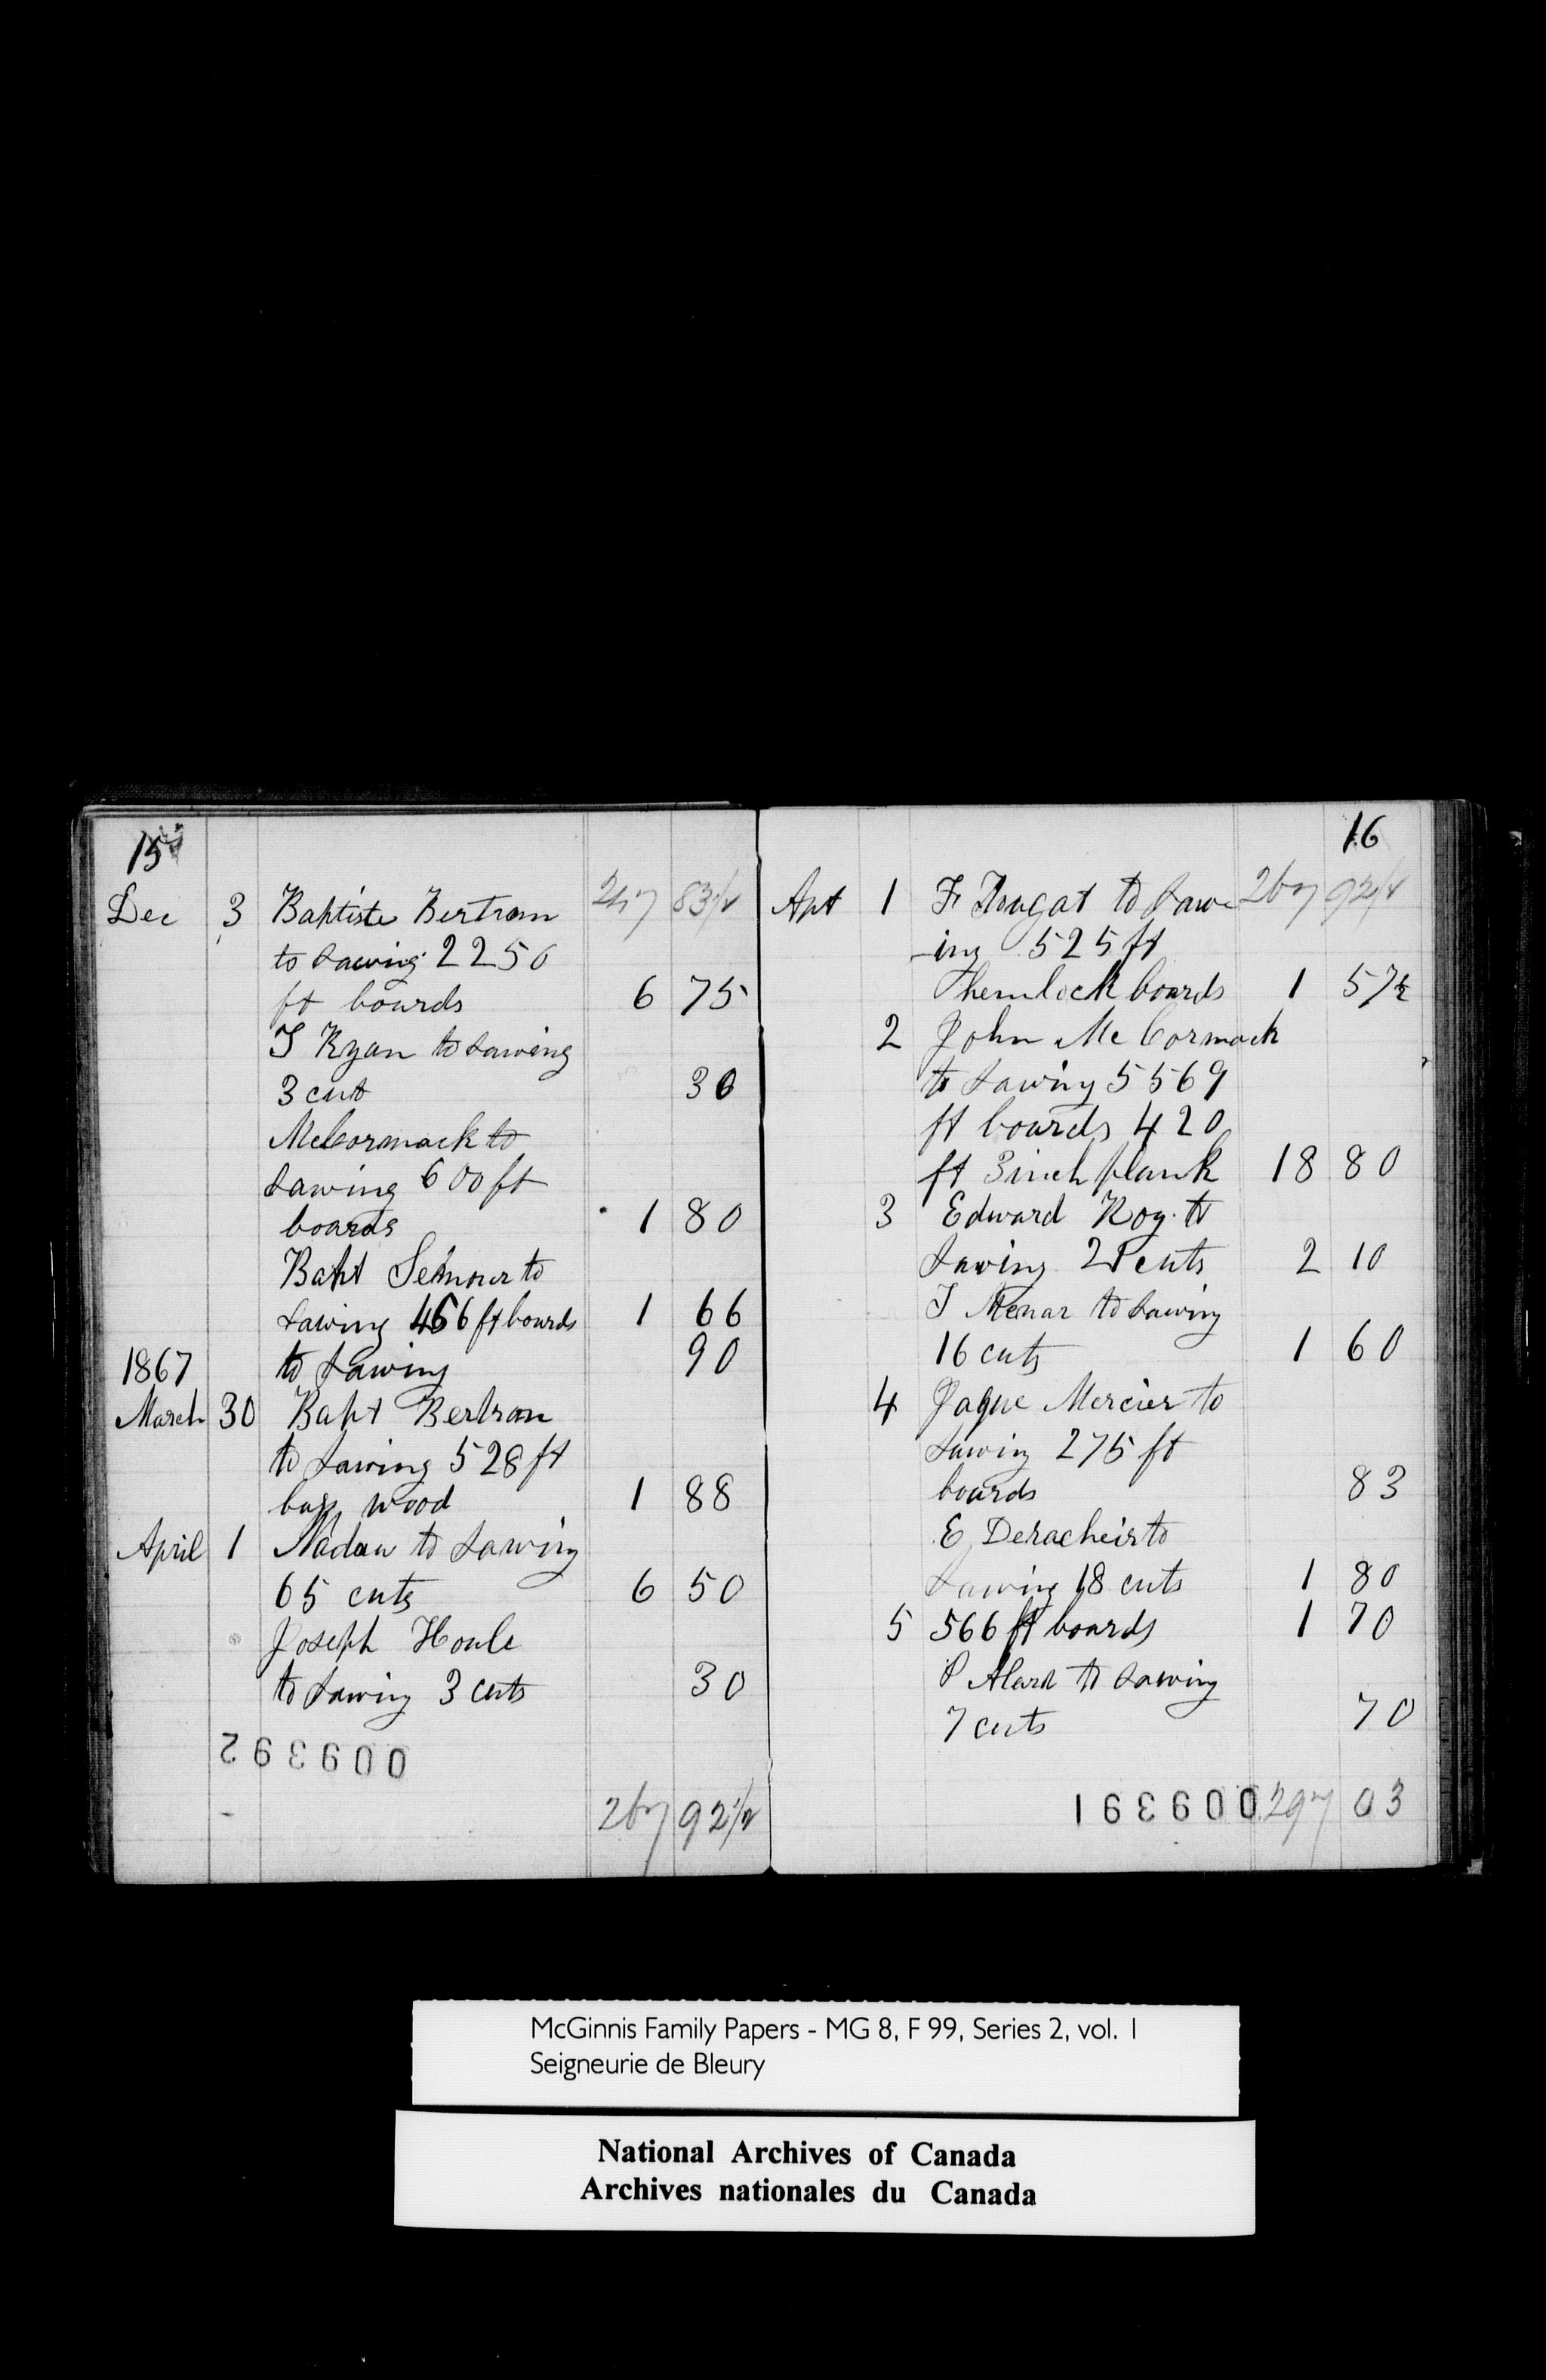 15
Dec 3 Baptiste Bertram 247 83½
to Sawing 2250
ft boards 6 75
T Ryan to Sawing
3 cut 30
McCormack to
Sawing 600 ft
boards 1 80
Bapt Semour to
Sawing 466 ft boards 1 66
1867 to Sawing 90
March 30 Bapt Bertram
to Sawing 528 ft
bass wood 1 88
April 1 Nadaw to Sawing
65 cuts 6 50
Joseph Houle
to Sawing 3 cuts 30
009392
267 92½
16
Apt 1 F to Saw 267 92½
ing 525 ft
hemlock boards 1 57½
2 John McCormack
to Sawing 5569
ft boards 420
ft 3 inch plank 18 80
3 Edward Roy to
Sawing 21 cuts 2 10
T Menar to Sawing
16 cuts 1 60
4 Jaque Mercier to
Sawing 275 ft
boards 83
E Deracheirto
Sawing 18 cuts 1 80
5 566 ft boards 1 70
P Alard to Sawing
7 cuts 70
009391 297 03
McGinnis Family Papers - MG 8, F 99, Series 2, vol. 1
Seigneurie de Bleury
National Archives of Canada
Archives nationales du Canada